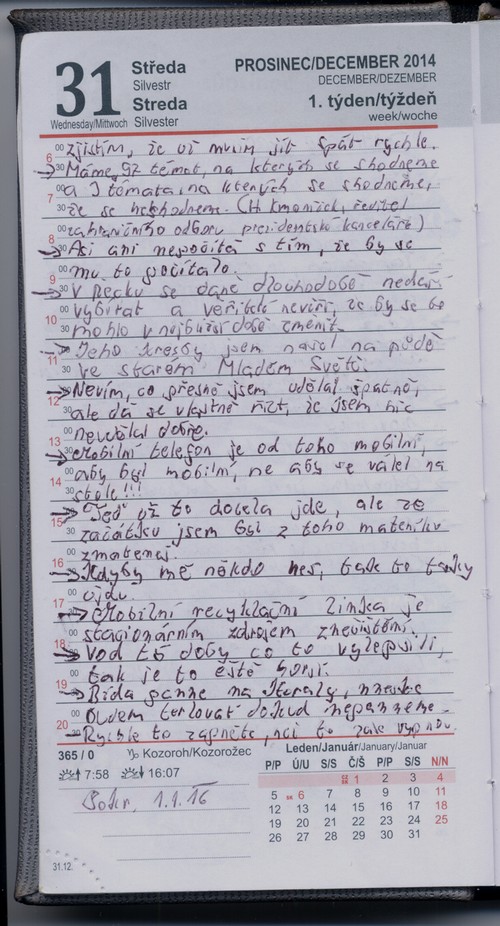 31
Středa
Silvestr
Streda
Silvester
Wednesday/Mittwoch
PROSINEC/DECEMBER 2014
DECEMBER/DEZEMBER
1. týden/týždeň
week/woche
zjistím, že už musím jít spát rychle.
6 00
→ Máme 92 témat, na kterých se shodneme
30
a 3 témata, na kterých se shodneme,
7 00
že se neshodneme. (H. Kmoníček, ředitel
30
zahraničního odboru prezidentské kanceláře)
8 00
→ Asi ani nepočítá s tím, že by se
30
mu to počítalo.
9 00
→ V Řecku se daně dlouhodobě nedaří
30
vybírat a věřitelé nevěří, že by se to
10 00
mohlo v nejbližší době změnit.
30
→ Jeho kresby jsem našel na půdě
11 00
ve starém Mladém Světě.
30
→ Nevím, co přesně jsem udělal špatně,
12 00
ale dá se vlastně říct, že jsem nic
30
neudělal dobře.
13 00
→ Mobilní telefon je od toho mobilní,
30
aby byl mobilní, ne aby se válel na
14 00
stole!!!
30
→ Teď už to docela jde, ale ze
15 00
začátku jsem byl z toho
30
zmatenej.
16 00
→ Kdyby mě někdo nes, tak to taky
30
ujdu.
17 00
→ Mobilní recyklační linka je
30
stacionárním zdrojem znečištění.
18 00
→ Vod tý doby co to vylepšili,
30
tak je to eště horší.
19 00
→ Běda panne na
30
budem terlovat dokud nepanneme.
20 00
→ Rychle to zapněte, než to zase vypnou.
30
365 / 0
Kozoroh/Kozorožec
7:58 16:07
1.1.16
31.12.
Leden/Január/January/Januar
P/P Ú/U S/S Č/Š P/P S/S N/N
1 2 3 4
5 6 7 8 9 10 11
12 13 14 15 16 17 18
19 20 21 22 23 24 25
26 27 28 29 30 31